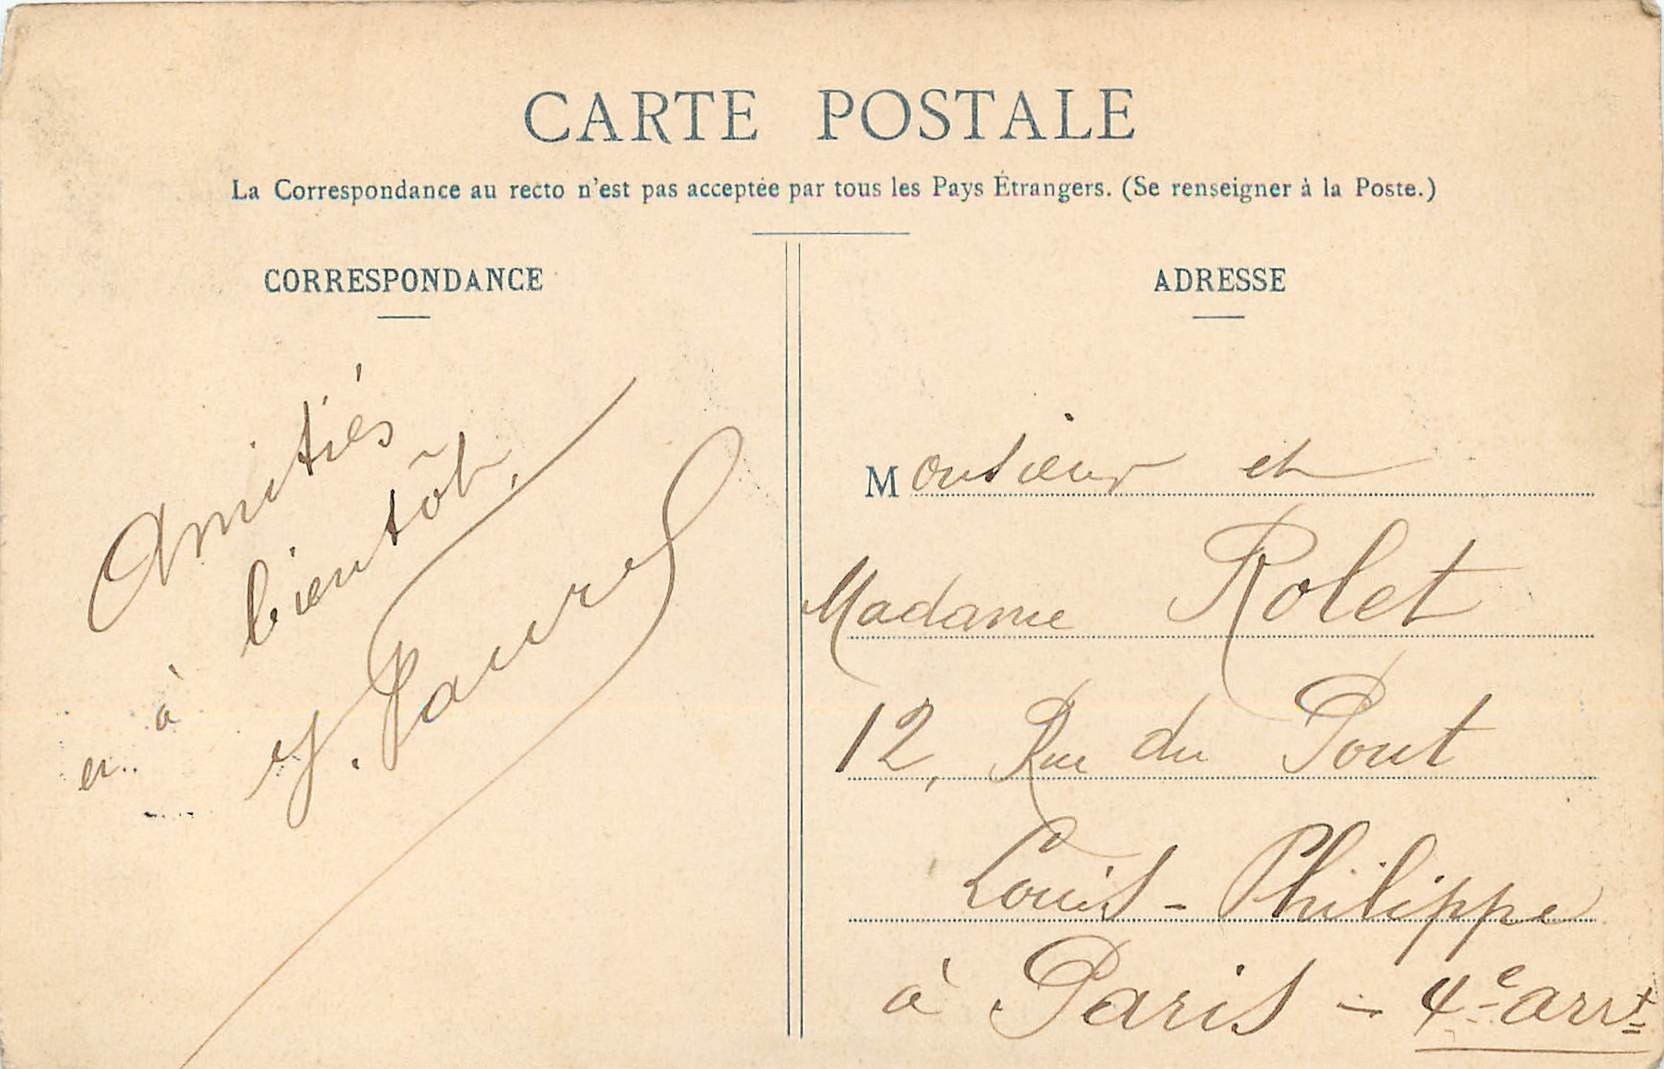 CARTE POSTALE
La Correspondance au recto n'est pas acceptée par tous les Pays Étrangers. (Se renseigner à la Poste.)
CORRESPONDANCE
Amitiés
et à bientôt.
ADRESSE
Monsieur et
Madame Rolet
12, Rue du Pont
Louis-Philippe
à Paris - 4e arrt